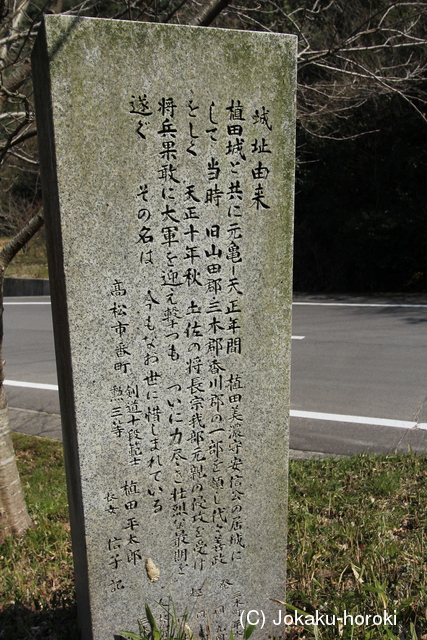 城址由来
植田城と共に元亀ー天正年間 植田美濃守安信公の居城に
して 当時 旧山田郡三木郡香川郡の一部を領し代々善政
をしく 天正十年秋 土佐の将長宗我部元親の侵攻を受け
将兵果敢に大軍を迎え撃つも ついに力尽き壮烈な最期を
遂ぐ その名は 今もなお世に惜しまれている
高松市番町 勲三等
剣道十段範士 植田平太郎
長女 信子 記
(C) Jokaku-horoki